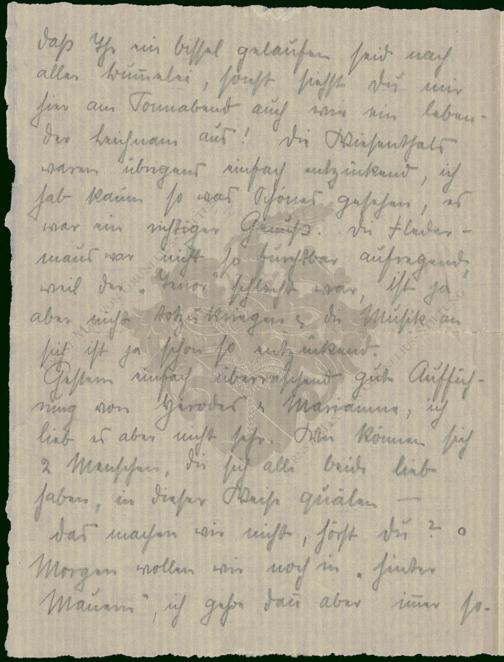 daß Ihr ein bissel gelaufen seid nach
aller Bummelei, sonst siehst Du mir
hier am Sonnabend auch wie ein leben-
der Leichnam aus! Die Wiesenthals
waren übrigens einfach entzückend, ich
hab kaum so was Schönes gesehen, es
war ein richtiger Genuß. Die Fleder-
maus war nicht so furchtbar aufregend,
weil der „Tenor" schlecht war, ist ja
aber nicht totzukriegen u. die Musik an
sich ist ja schon so entzückend.
Gestern einfach überraschend gute Auffüh-
rung von Herodes u. Mariamne, ich
lieb es aber nicht sehr. Wie können sich
2 Menschen, die sich alle beide lieb
haben, in dieser Weise quälen —
das machen wir nicht, hörst Du?
Morgen wollen wir noch in „hinter
Mauern", ich gehe dann aber immer so-